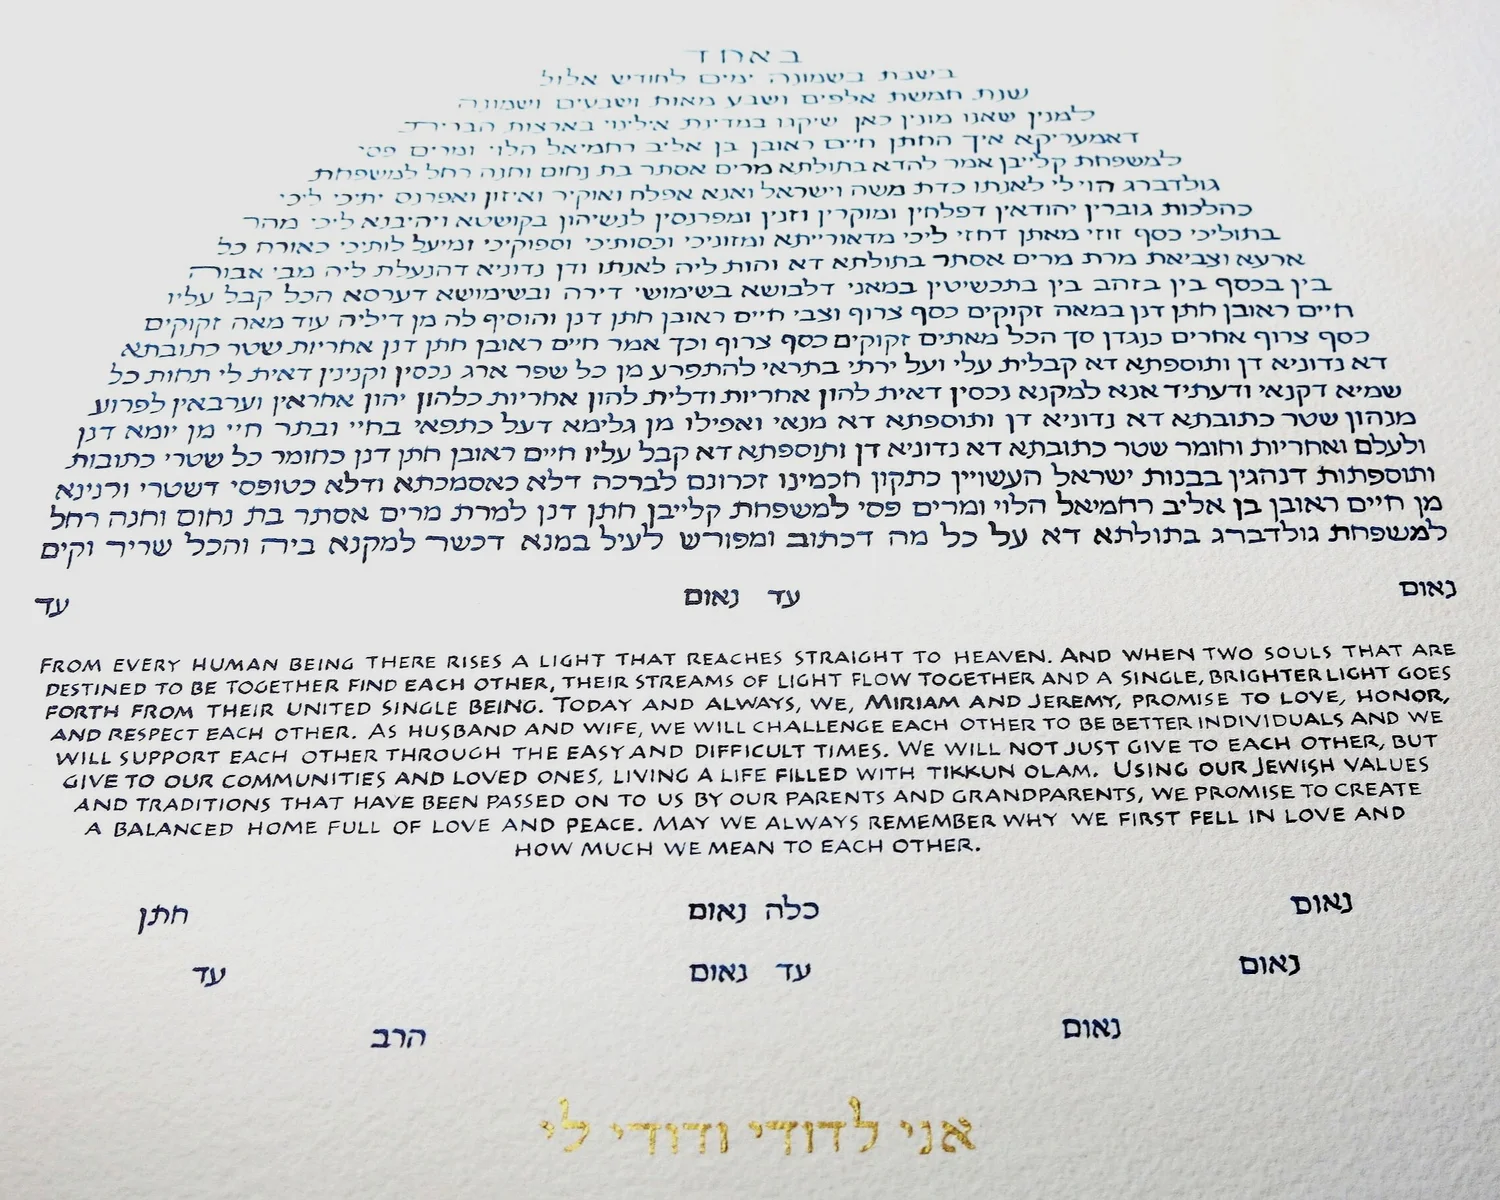 באחד
בשבת בשמונה ימים לחודש אלול
שנת חמשת אלפים ושבע מאות ושבעים ושמונה
למנין שאנו מונין כאן שיקגו במדינת אילינוי בארצות הברית
דאמעריקא איך החתן חיים ראובן בן אליב רחמיאל הלוי ומרים פסי
למשפחת קלייבן אמר להדא בתולתא מרים אסתר בת נחום וחנה רחל למשפחת
גולדברג הוי לי לאנתו כדת משה וישראל ואנא אפלח ואוקיר ואיזון ואפרנס יתיכי ליכי
כהלכות גוברין יהודאין דפלחין ומוקרין וזנין ומפרנסין לנשיהון בקושטא ויהיבנא ליכי מהר
בתוליכי כסף זוזי מאתן דחזי ליכי מדאורייתא ומזוניכי וכסותיכי וספוקיכי ומיעל לותיכי כאורח כל
ארעא וצביאת מרת מרים אסתר בתולתא דא והות ליה לאנתו ודן נדוניא דהנעלת ליה מבי אבוה
בין בכסף בין בזהב בין בתכשיטין במאני דלבושא בשימושי דירה ובשימושא דערסא הכל קבל עליו
חיים ראובן חתן דנן במאה זקוקים כסף צרוף וצבי חיים ראובן חתן דנן והוסיף לה מן דיליה עוד מאה זקוקים
כסף צרוף אחרים כנגדן סך הכל מאתים זקוקים כסף צרוף וכך אמר חיים ראובן חתן דנן אחריות שטר כתובתא
דא נדוניא דן ותוספתא דא קבלית עלי ועל ירתי בתראי להתפרע מן כל שפר ארג נכסין וקנינין דאית לי תחות כל
שמיא דקנאי ודעתיד אנא למקנא נכסין דאית להון אחריות ודלית להון אחריות כלהון יהון אחראין וערבאין לפרוע
מנהון שטר כתובתא דא נדוניא דן ותוספתא דא מנאי ואפילו מן גלימא דעל כתפאי בחיי ובתר חיי מן יומא דנן
ולעלם ואחריות וחומר שטר כתובתא דא נדוניא דן ותוספתא דא קבל עליו חיים ראובן חתן דנן כחומר כל שטרי כתובות
ותוספתות דנהגין בבנות ישראל העשויין כתקון חכמינו זכרונם לברכה דלא כאסמכתא ודלא כטופסי דשטרי וקנינא
מן חיים ראובן בן אליב רחמיאל הלוי ומרים פסי למשפחת קלייבן חתן דנן למרת מרים אסתר בת נחום וחנה רחל
למשפחת גולדברג בתולתא דא על כל מה דכתוב ומפורש לעיל במנא דכשר למקנא ביה והכל שריר וקים
נאום עד נאום עד
From every human being there rises a light that reaches straight to heaven. And when two souls that are
destined to be together find each other, their streams of light flow together and a single, brighter light goes
forth from their united single being. Today and always, we, Miriam and Jeremy, promise to love, honor,
and respect each other. As husband and wife, we will challenge each other to be better individuals and we
will support each other through the easy and difficult times. We will not just give to each other, but
give to our communities and loved ones, living a life filled with tikkun olam. Using our Jewish values
and traditions that have been passed on to us by our parents and grandparents, we promise to create
a balanced home full of love and peace. May we always remember why we first fell in love and
how much we mean to each other.
נאום כלה נאום חתן
נאום עד נאום עד
נאום הרב
אני לדודי ודודי לי